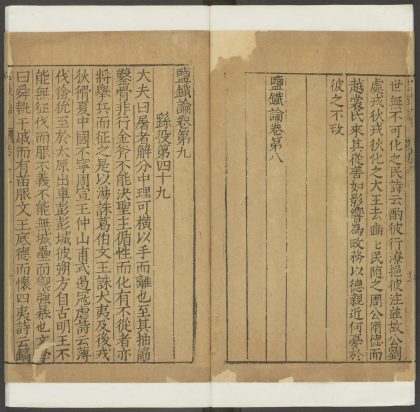 世無不可化之民詩云酌彼行潦挹彼注兹故公劉
處戎狄戎狄化之大王去豳〻民隨之周公脩德而
越裳氏來其從善如影響為政務以德親近何憂於
彼之不攺
鹽鐵論卷第八
鹽鐵論卷第九
繇役第四十九
大夫曰屠者解分中理可横以手而離也至其抽筋
鑿骨非行金斧不能決聖主循性而化有不從者亦
將舉兵而征之是以湯誅葛伯文王誅犬夷及後戎
狄猾夏中國不寧周宣王仲山甫式遏冦虐詩云薄
伐獫狁至於太原出車彭彭城彼朔方自古明王不
能無征伐而服不義不能無城壘而禦強暴也文學
曰舜執干戚而有苗服文王底德而懷四夷詩云鎬